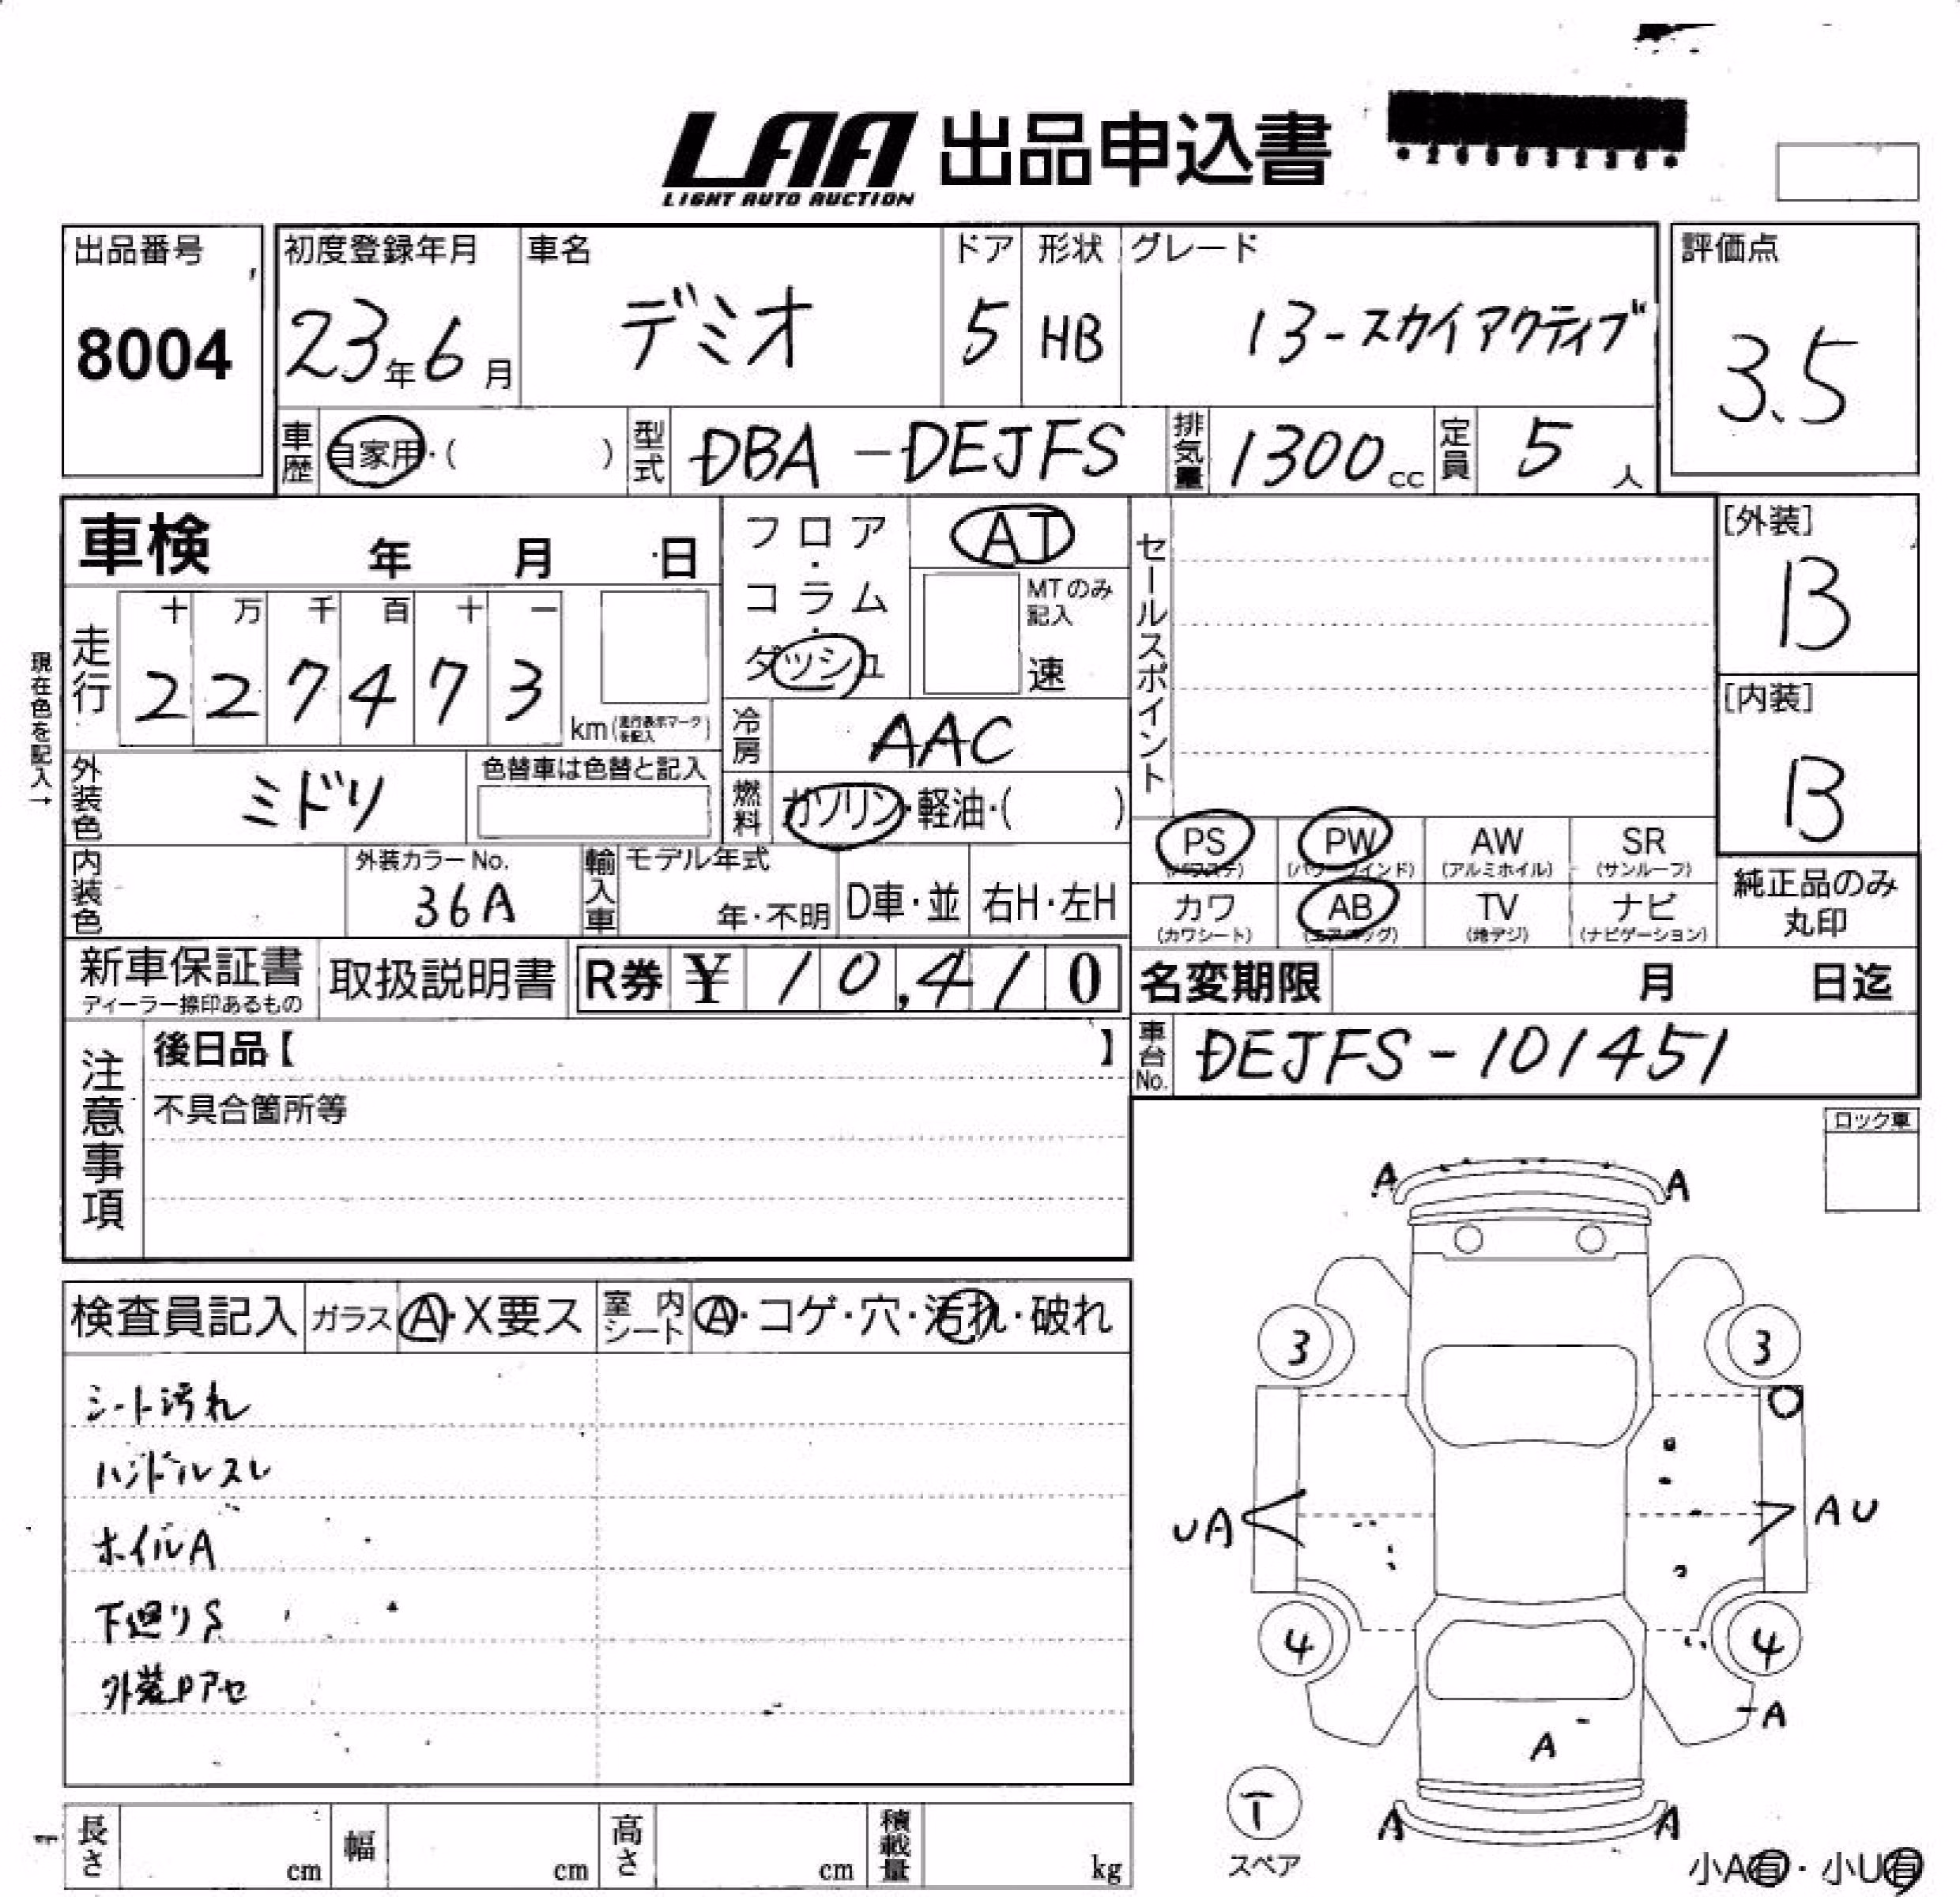 LAA 出品申込書
LIGHT AUTO AUCTION
出品番号 初度登録年月 車名 ドア 形状 グレード 評価点
8004 23年6月 デミオ 5 HB 13-スカイアクティブ 3.5
車歴 自家用・( ) 型式 DBA-DEJFS 排気量 1300cc 定員 5人
車検 年 月 日
フロア・コラム・ダッシュ
AT
MTのみ記入
速
セールスポイント
[外装]
B
[内装]
B
現在色を記入→
走行 十 万 千 百 十 一
2 2 7 4 7 3 km(走行表示マークを記入)
冷房 AAC
外装色 ミドリ 色替車は色替と記入
燃料 ガソリン・軽油・( )
PS (パワステ) PW (パワーウインド) AW (アルミホイル) SR (サンルーフ)
カワ (カワシート) AB (エアバッグ) TV (地デジ) ナビ (ナビゲーション)
純正品のみ丸印
内装色 外装カラーNo. 36A 輸入車 モデル年式 年・不明 D車・並 右H・左H
新車保証書 ディーラー捺印あるもの 取扱説明書 R券 ¥ 10,410
名変期限 月 日迄
車台No. DEJFS-101451
注意事項
後日品【 】
不具合箇所等
ロック車
検査員記入 ガラス A・X要ス 室内シート A・コゲ・穴・汚れ・破れ
シート汚れ
ハンドルスレ
ホイルA
下廻りS
外装Pアセ
A A
3 3
UA AU
4 4
A
A
A A
T
スペア
小A有・小U有
長さ cm 幅 cm 高さ cm 積載量 kg